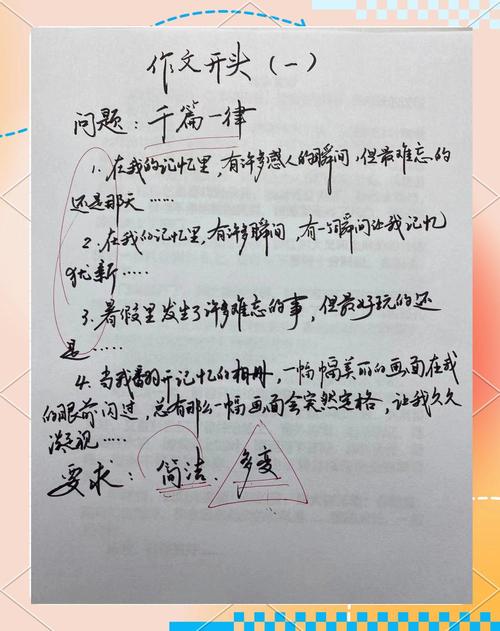 作文开头（一）
问题：千篇一律
1.在我的记忆里，有许多感人的瞬间，但最难忘的
还是那天……
2.在我的记忆里，有许多瞬间，有一个瞬间让我记忆
犹新……
3.暑假里发生了许多难忘的事，但最好玩的还
是……
4.当我翻开记忆的相册，一幅幅美丽的画面在我
的眼前闪过，总有那么一幅画面会突然定格，让我久久
凝视……
要求：简洁.多变